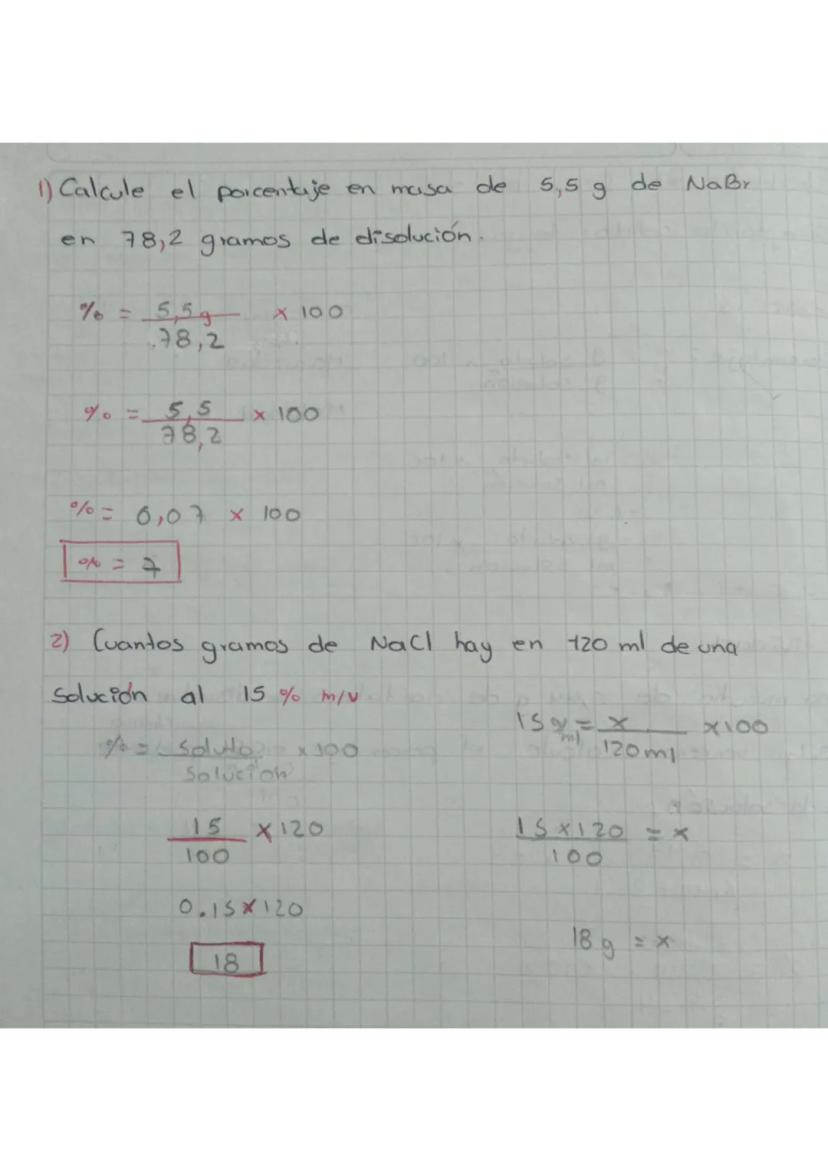 1) Calcule el porcentaje en masa de 5,5 g de NaBr
en 78,2 gramos de disolución.
% = 5,5 g x 100
78,2
% = 5,5 x 100
78,2
% = 0,07 x 100
% = 7
2) Cuantos gramos de NaCl hay en 120 ml de una
solución al 15 % m/v
% = soluto x 100
solucion
15 x 120
100
0.15 x 120
18
15 g/ml = x x 100
120 ml
15 x 120 = x
100
18 g = x